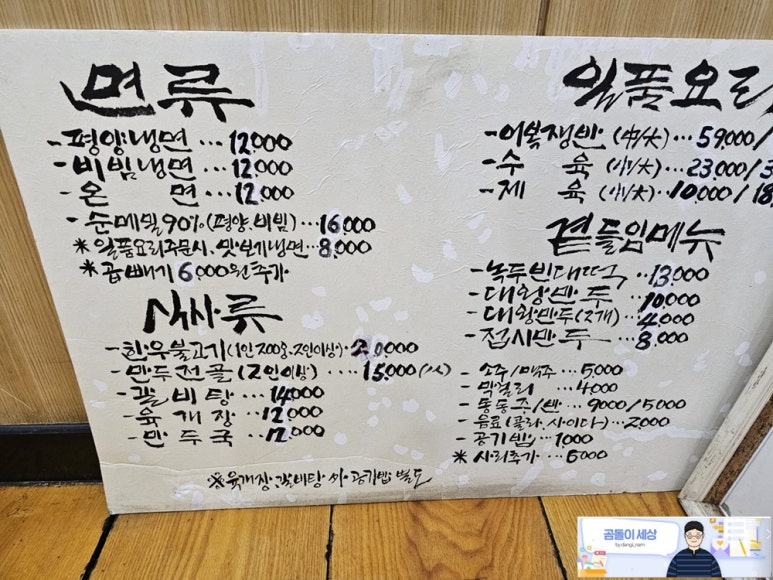 면류
- 평양냉면 ... 12,000
- 비빔냉면 ... 12,000
- 온 면 ... 12,000
- 순메밀90% (평양.비빔) ... 16,000
* 일품요리주문시, 맛보기냉면 ... 8,000
* 곱빼기 6,000원추가
식사류
- 한우불고기 (1인 200g, 2인이상) . 20,000
- 만두전골 (2인이상) .... 15,000 (1人)
- 갈비탕 ... 14,000
- 육개장 .. 12,000
- 만두국 .. 12,000
※ 육개장, 갈비탕 시 공기밥 별도
일품요리
- 어복쟁반 (中/大) ... 59,000/
- 수 육 (小/大) ... 23,000/3
- 제 육 (小/大) .. 10,000/18
곁들임메뉴
- 녹두빈대떡 .. 13,000
- 대왕만두 .. 10,000
- 대왕만두 (2개) .. 4,000
- 접시만두 .. 8,000
- 소주/맥주 ... 5,000
- 막걸리 ... 4,000
- 동동주/반 ... 9000/5000
- 음료 (콜라, 사이다) ... 2,000
- 공기밥 ... 1,000
* 사리추가 ... 6000
곰돌이 세상
by.dangi_nam